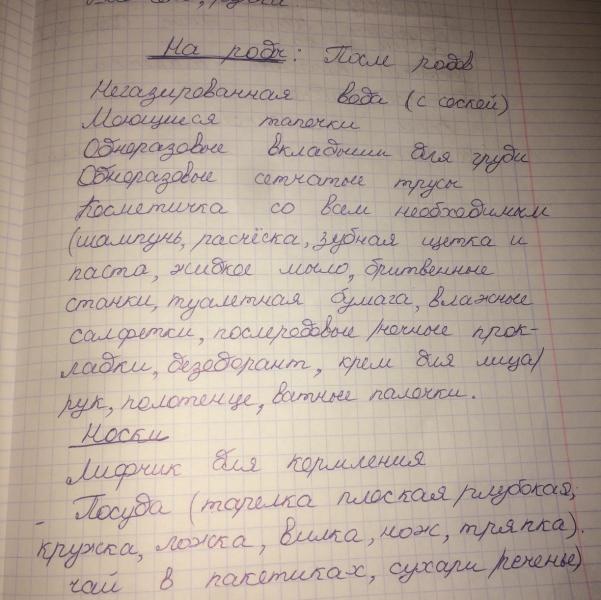 На роды: После родов
Негазированная вода (с соской)
Моющиеся тапочки
Одноразовые вкладыши для груди
Одноразовые сетчатые трусы
Косметичка со всем необходимым
(шампунь, расчёска, зубная щетка и
паста, жидкое мыло, бритвенные
станки, туалетная бумага, влажные
салфетки, послеродовые/ночные прок-
ладки, дезодорант, крем для лица/
рук, полотенце, ватные палочки.
Носки
Лифчик для кормления
- Посуда (тарелка плоская/глубокая,
кружка, ложка, вилка, нож, тряпка).
чай в пакетиках, сухари/печенье)